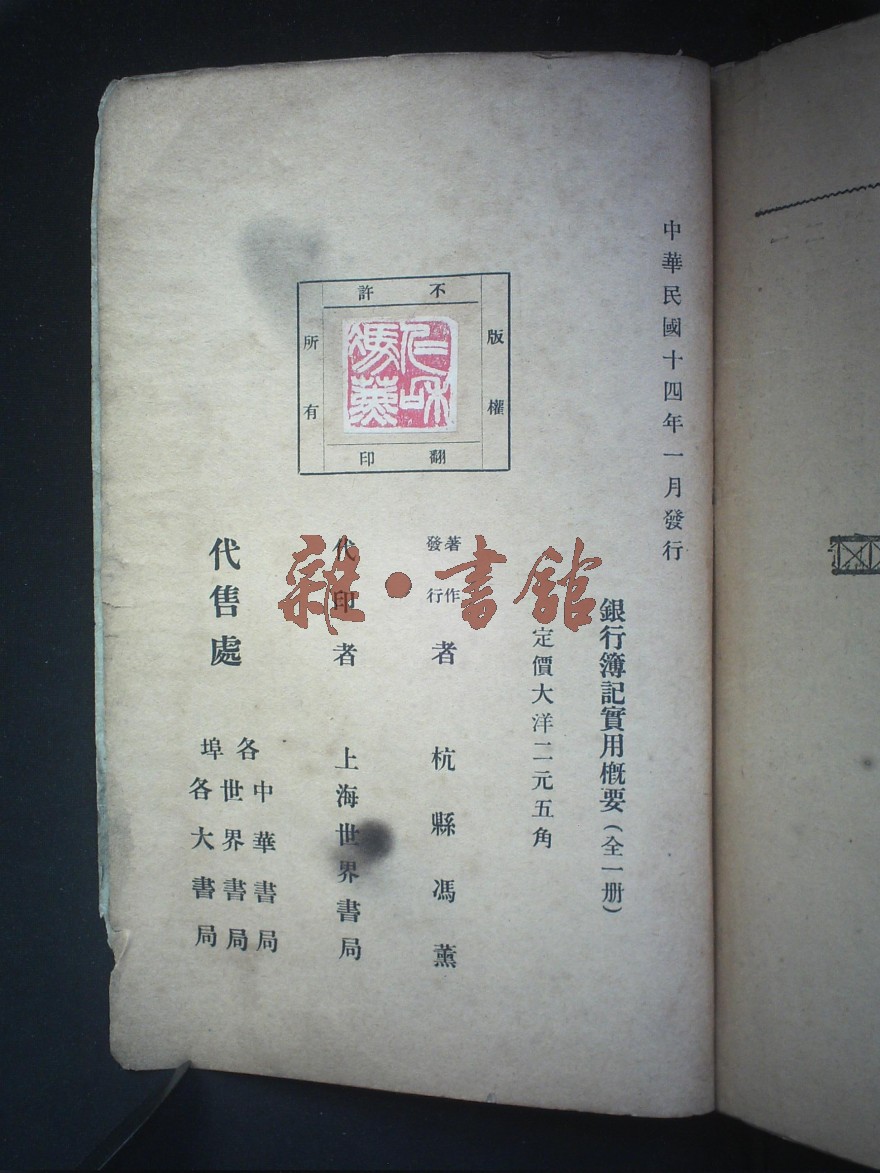 中華民國十四年一月發行
銀行簿記實用概要（全一册）
定價大洋二元五角
版權
所有
不許
翻印
仁和
馮薰
著作
發行
者 杭縣馮薰
代印者 上海世界書局
代售處
各埠
中華書局
世界書局
各大書局
雜·書館